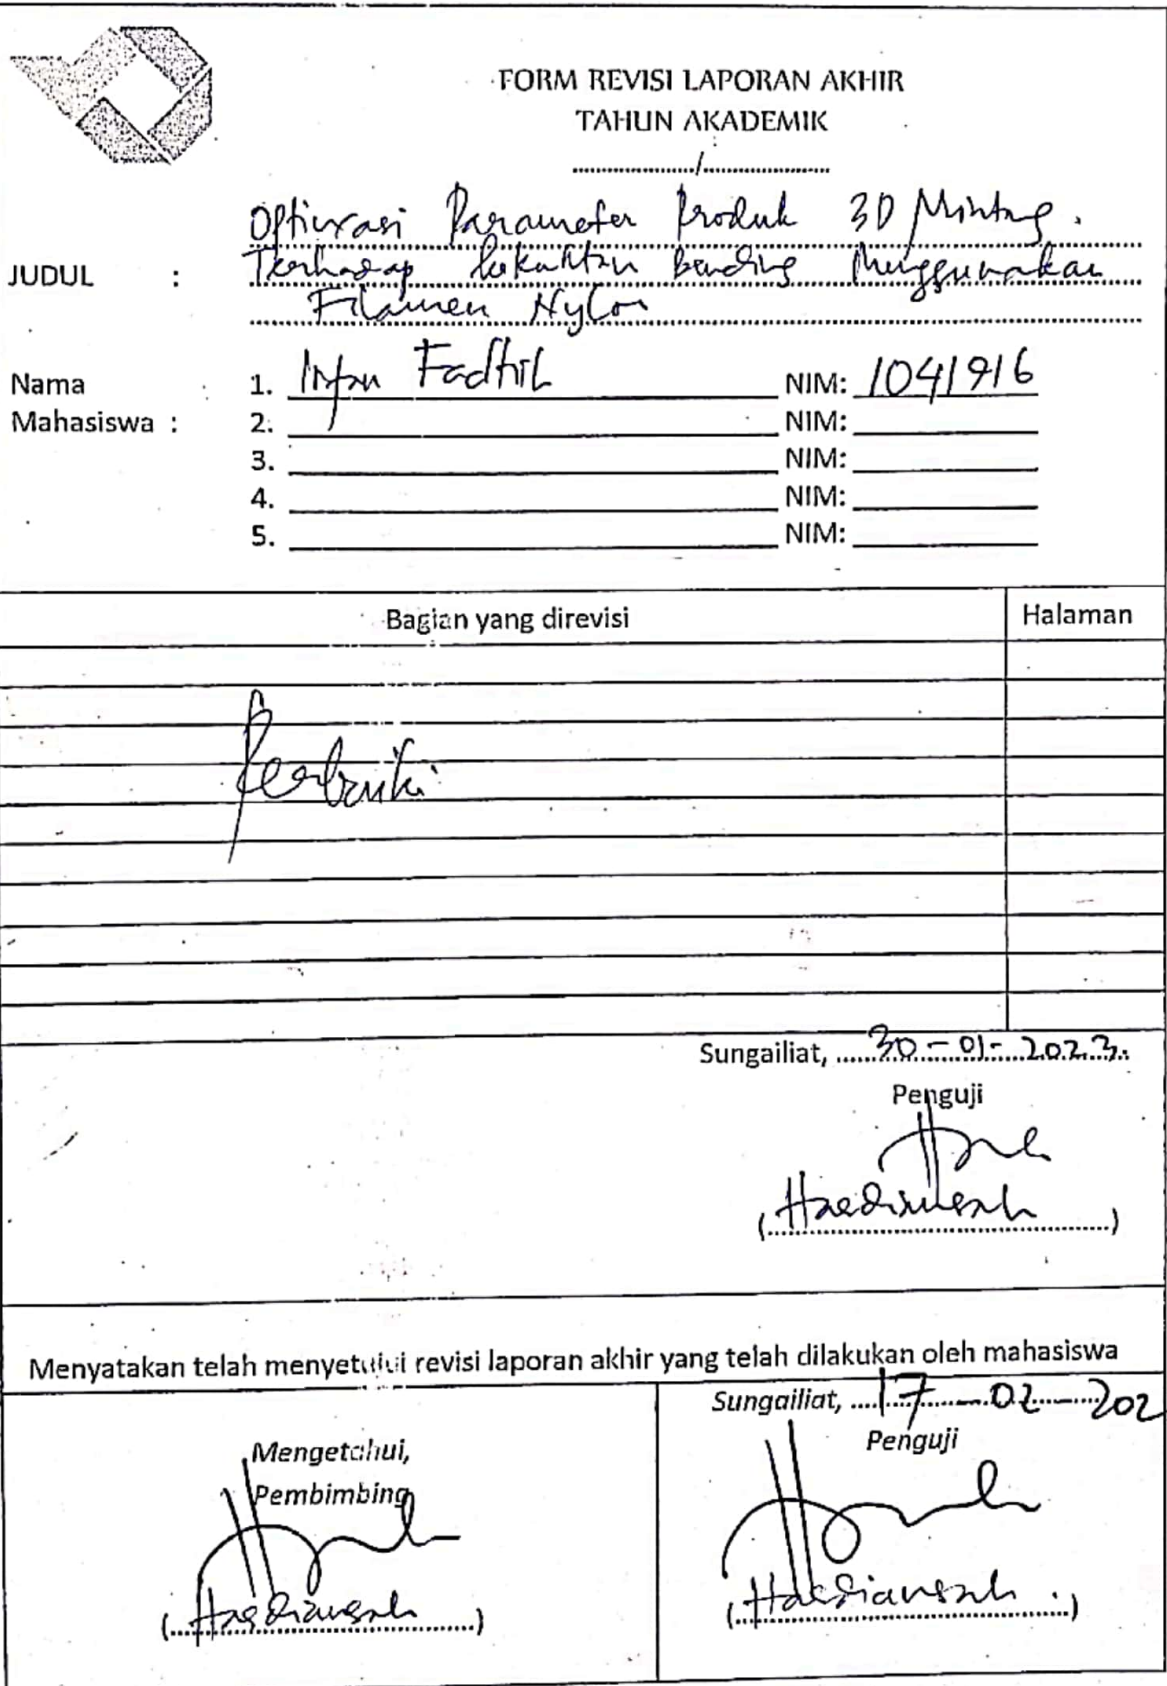 FORM REVISI LAPORAN AKHIR
TAHUN AKADEMIK
............../..............
Optimasi Parameter Produk 3D Printing
JUDUL : Terhadap kekuatan Bending Menggunakan
Filamen Nylon
Nama Mahasiswa :
1. Irfan Fadhil NIM: 1041916
2. NIM:
3. NIM:
4. NIM:
5. NIM:
Bagian yang direvisi Halaman
Perbaiki
Sungailiat, 30-01-2023.
Penguji
(Haediansah)
Menyatakan telah menyetujui revisi laporan akhir yang telah dilakukan oleh mahasiswa
Mengetahui,
Pembimbing
(Haediansah)
Sungailiat, 17-02-202
Penguji
(Haediansah)